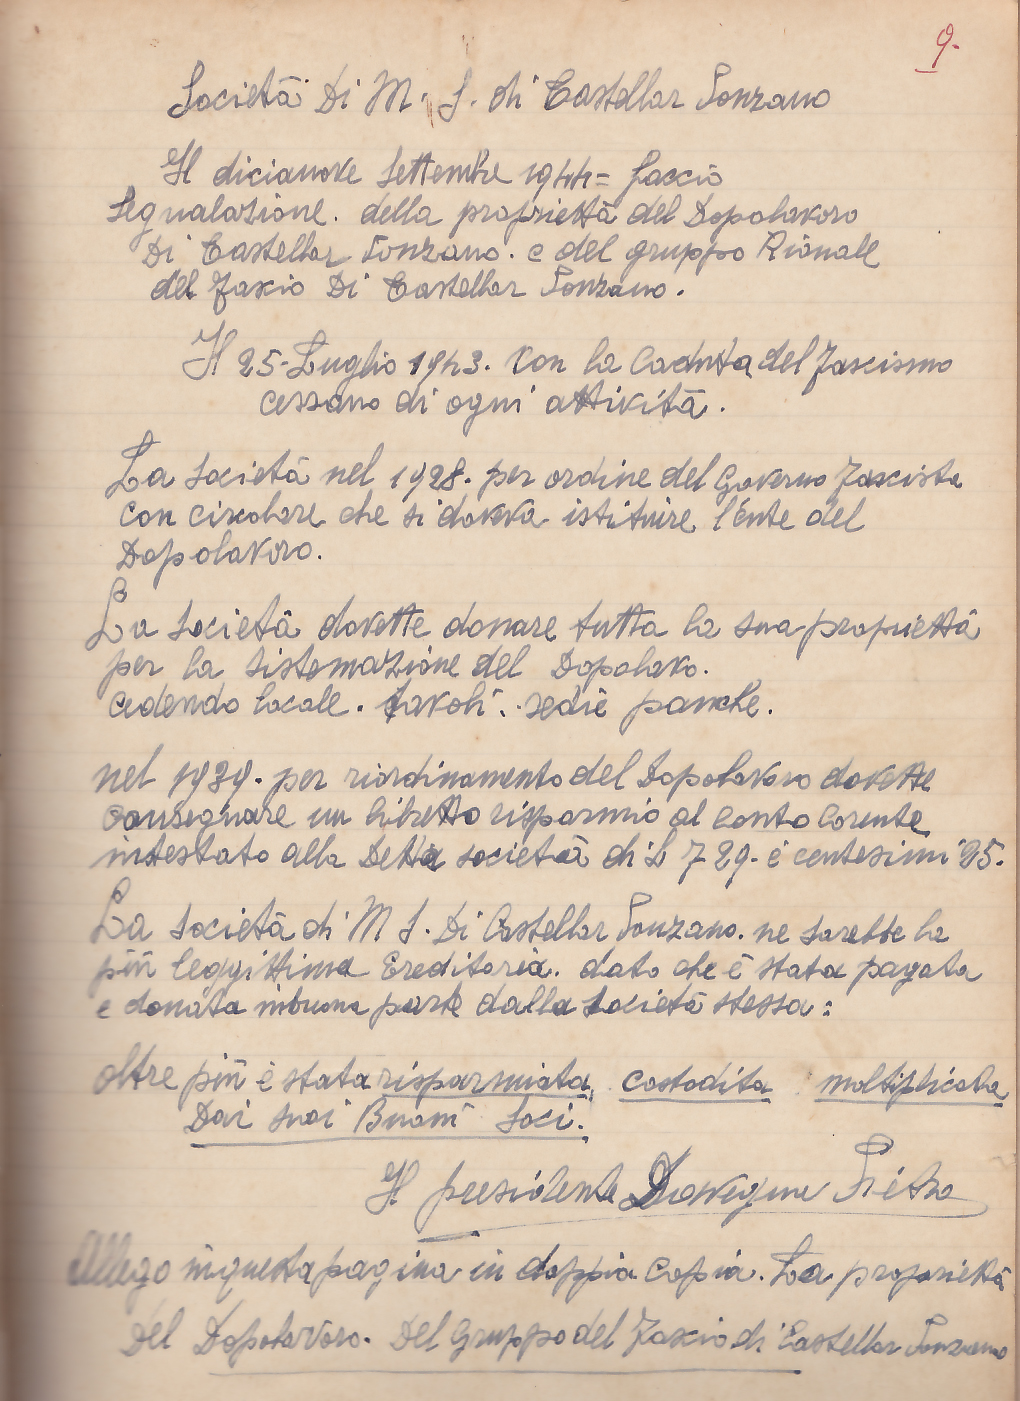 9.
Società Di M. S. di Castellar Ponzano
Il dicianove Settembre 1944= faccio
Segnalazione. della proprietà del Dopolavoro
Di Castellar Ponzano. e del gruppo Rionale
del Fascio Di Castellar Ponzano.
Il 25-Luglio 1943. Con la Caduta del Fascismo
cessano di ogni attività.
La Società nel 1928. per ordine del Governo Fascista
con circolare che si doveva istituire l'ente del
Dopolavoro.
La Società dovette donare tutta la sua proprietà
per la sistemazione del Dopolavo.
cedendo locale. tavoli. sedie panche.
nel 1939. per riordinamento del Dopolavoro dovette
consegnare un libretto risparmio al Conto Corente
intestato alla Detta società di L 729. e centesimi 25.
La Società di M S. Di Castellar Ponzano. ne sarebbe la
più leggittima Ereditaria. dato che è stata pagata
e donata in buona parte dalla Società stessa:
oltre più è stata risparmiata, costodita moltiplicata
Dai suoi Buoni Soci.
Il presidente Pietro
Allego in questa pagina in doppia Copia. La proprietà
Del Dopolavoro. Del Gruppo del Fascio di Castellar Ponzano